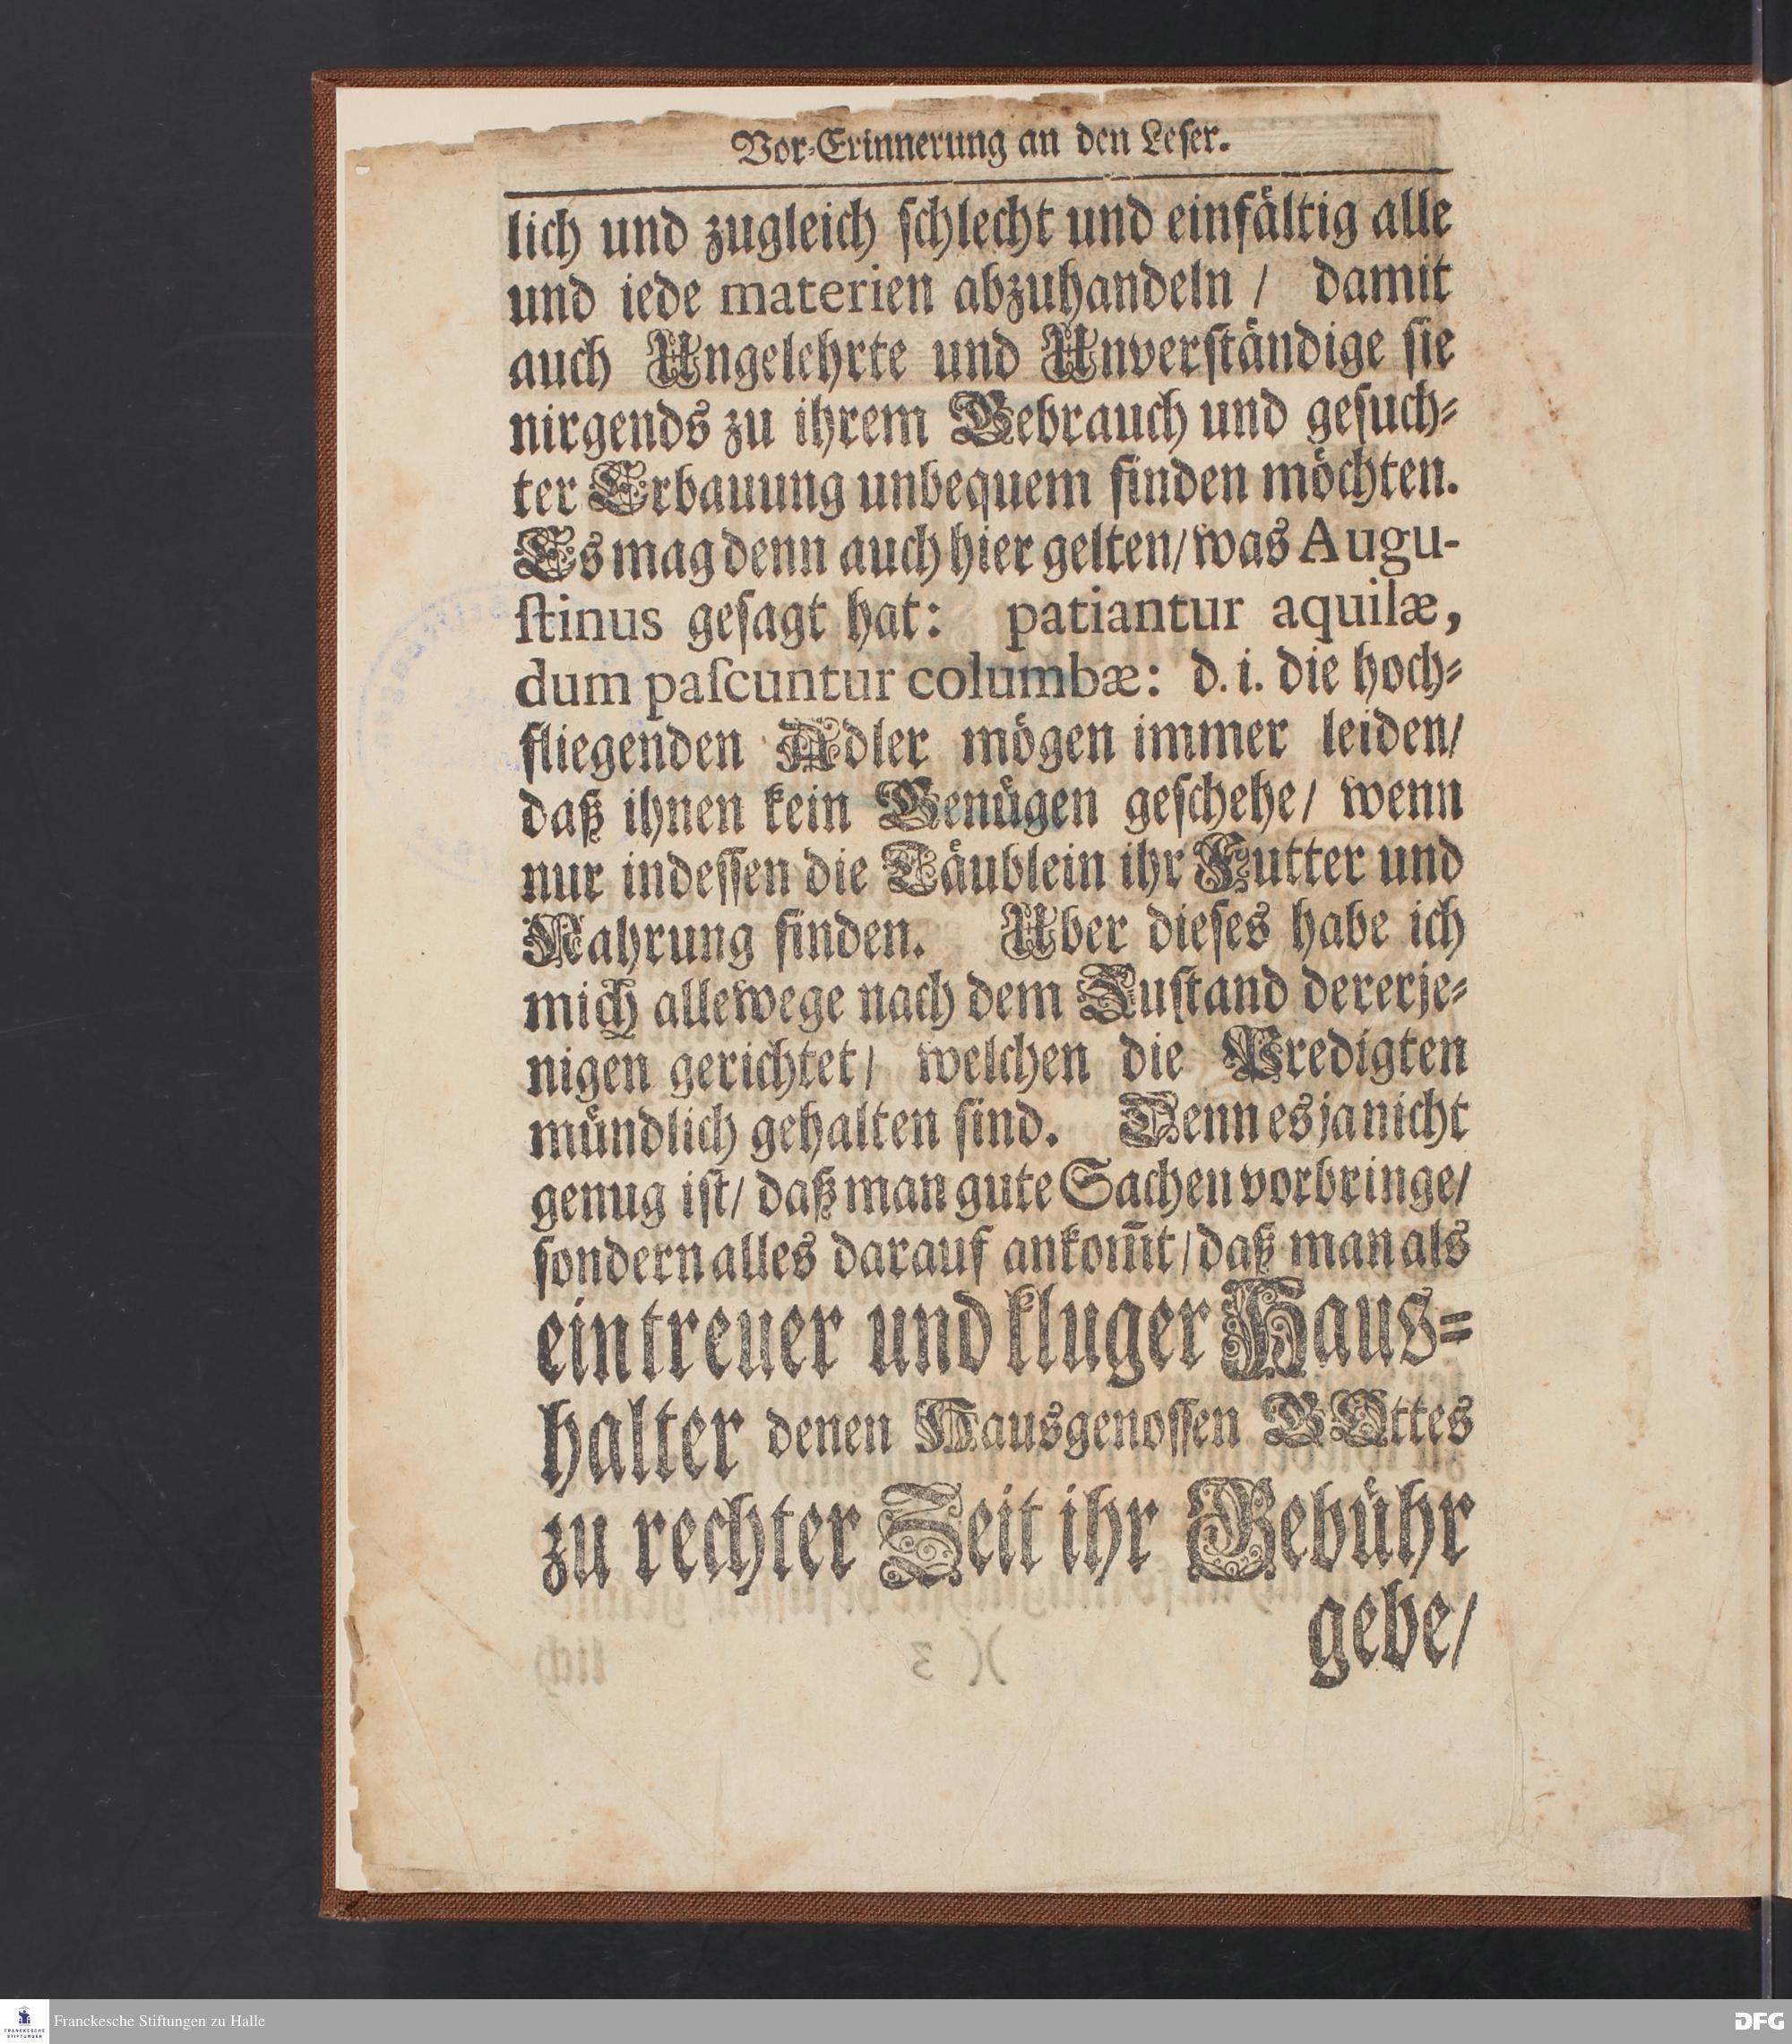 Vor-Erinnerung an den Leser.
lich und zugleich schlecht und einfältig alle
und iede materien abzuhandeln / damit
auch Ungelehrte und Unverständige sie
nirgends zu ihrem Gebrauch und gesuch-
ter Erbauung unbequem finden möchten.
Es mag denn auch hier gelten/ was Augu-
ſtinus gesagt hat: patiantur aquilæ,
dum paſcuntur columbæ: d. i. die hoch-
fliegenden Adler mögen immer leiden/
daß ihnen kein Genügen geschehe/ wenn
nur indessen die Täublein ihr Futter und
Nahrung finden. Uber dieses habe ich
mich allewege nach dem Zustand dererje-
nigen gerichtet/ welchen die Predigten
mündlich gehalten sind. Denn es ja nicht
genug ist/ daß man gute Sachen vorbringe/
sondern alles darauf ankom̃t/ daß man als
ein treuer und kluger Haus-
halter denen Hausgenossen GOttes
zu rechter Zeit ihr Gebühr
gebe/
Franckesche Stiftungen zu Halle
FRANCKESCHE STIFTUNGEN
DFG